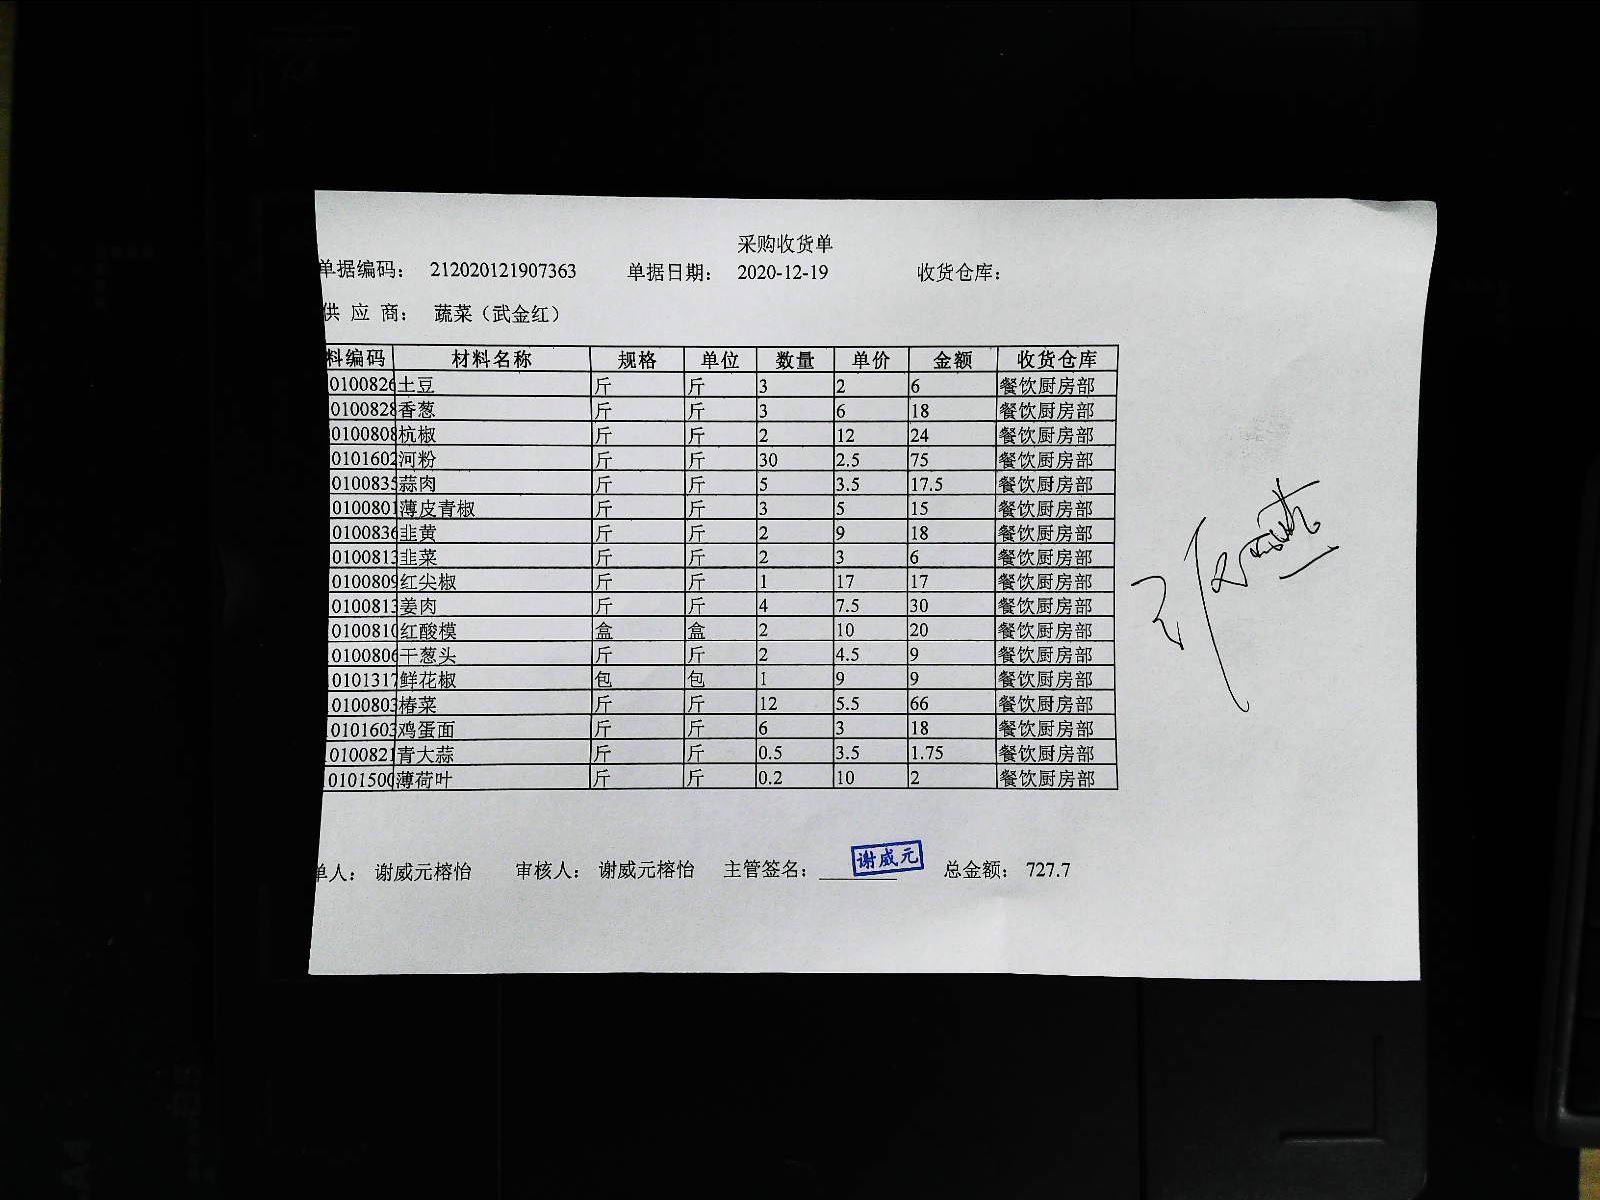 采购收货单
单据编码： 212020121907363 单据日期： 2020-12-19 收货仓库：
供 应 商： 蔬菜（武金红）
料编码 材料名称 规格 单位 数量 单价 金额 收货仓库
0100826 土豆 斤 斤 3 2 6 餐饮厨房部
0100828 香葱 斤 斤 3 6 18 餐饮厨房部
0100808 杭椒 斤 斤 2 12 24 餐饮厨房部
0101602 河粉 斤 斤 30 2.5 75 餐饮厨房部
0100835 蒜肉 斤 斤 5 3.5 17.5 餐饮厨房部
0100801 薄皮青椒 斤 斤 3 5 15 餐饮厨房部
0100836 韭黄 斤 斤 2 9 18 餐饮厨房部
0100813 韭菜 斤 斤 2 3 6 餐饮厨房部
0100809 红尖椒 斤 斤 1 17 17 餐饮厨房部
0100813 姜肉 斤 斤 4 7.5 30 餐饮厨房部
0100810 红酸模 盒 盒 2 10 20 餐饮厨房部
0100806 干葱头 斤 斤 2 4.5 9 餐饮厨房部
0101317 鲜花椒 包 包 1 9 9 餐饮厨房部
0100803 椿菜 斤 斤 12 5.5 66 餐饮厨房部
0101603 鸡蛋面 斤 斤 6 3 18 餐饮厨房部
0100821 青大蒜 斤 斤 0.5 3.5 1.75 餐饮厨房部
0101500 薄荷叶 斤 斤 0.2 10 2 餐饮厨房部
单人： 谢威元榕怡 审核人： 谢威元榕怡 主管签名： 谢威元 总金额： 727.7